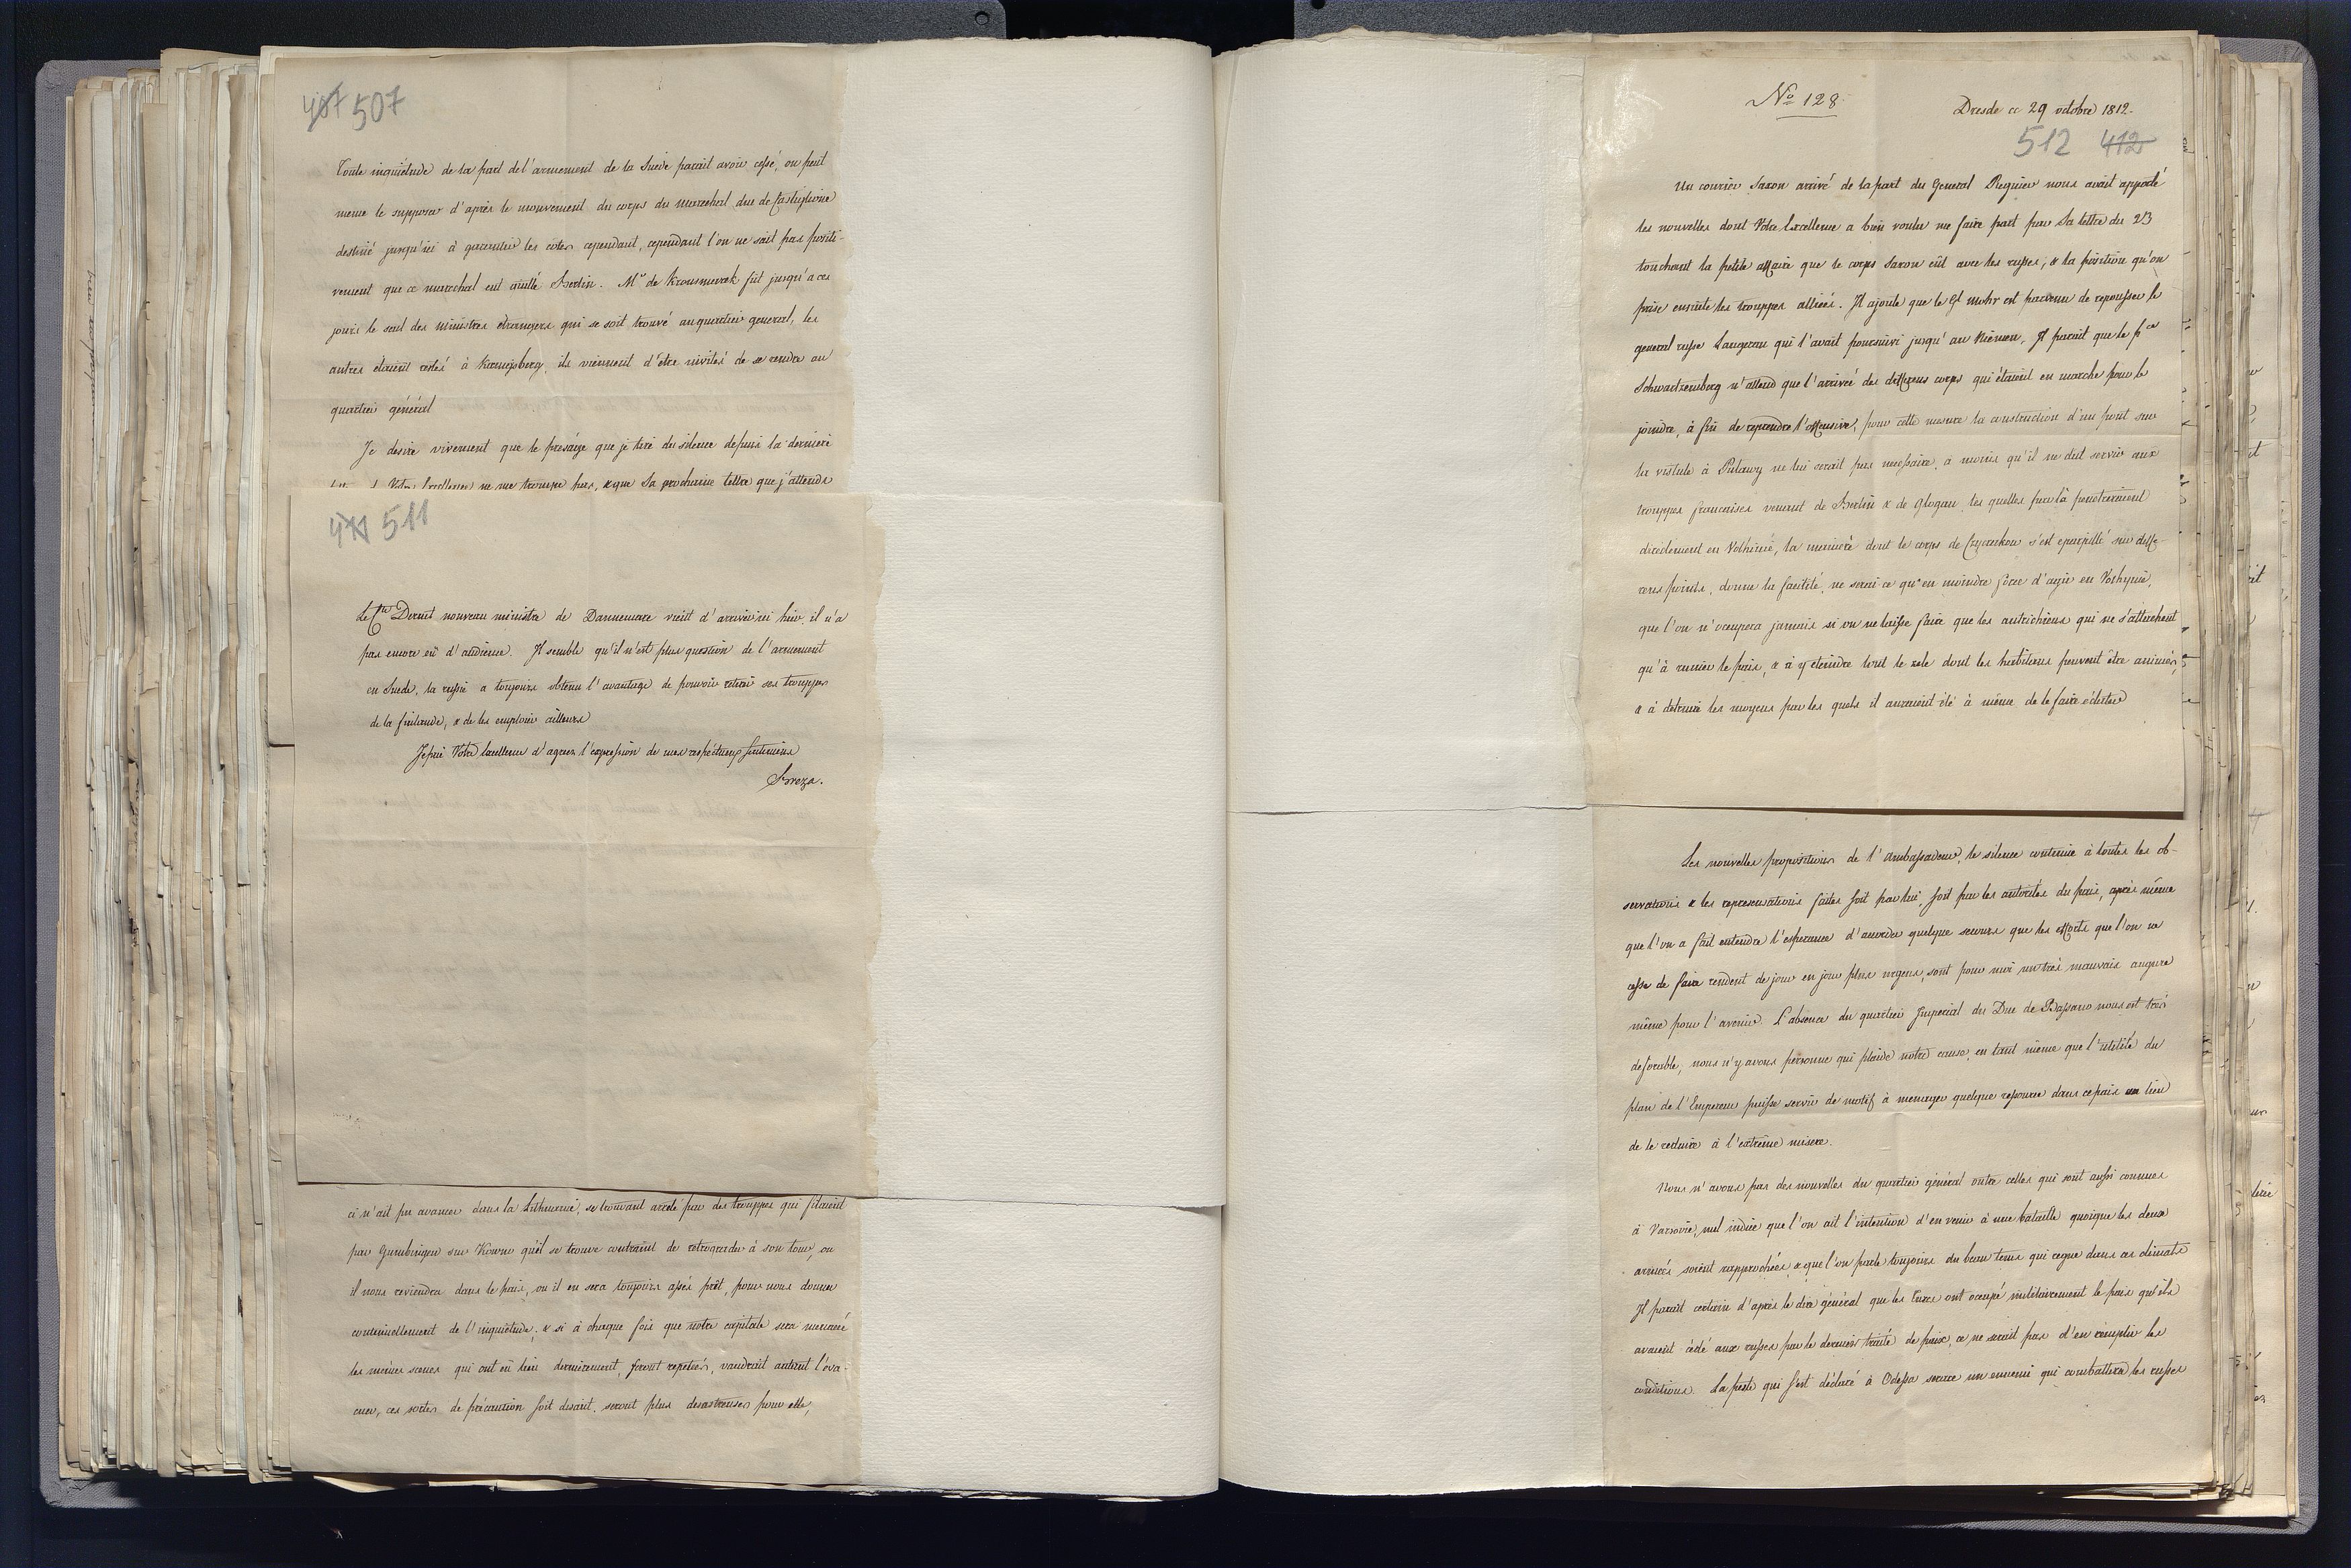 407 507
Toute inquiétude de la part de l'armement de la Suede parait avoir cessé, on peut
meme le supposer d'après le mouvement du corps du marechal duc de Castiglione
destiné jusqu'ici à garantir les côtes cependant, cependant l'on ne sait pas positi-
vement que ce marechal eut quitté Berlin. Mr de Krousmarck fut jusqu'a ces
jours le seul des ministres étrangers qui se soit trouvé au quartier general, les
autres étaient restés à Kœnigsberg, ils viennent d'être invités de se rendre au
quartier général
Je desire vivement que le présage que je tire du silence depuis la derniere
Votre Excellence ne me trompe pas, & que Sa prochaine lettre que j'attends
411 511
Le Cte Dernat nouveau ministre de Dannemarc vient d'arriver ici hier, il n'a
pas encore eu d'audience. Il semble qu'il n'est plus question de l'armement
en Suede, la russie a toujours obtenu l'avantage de pouvoir retirer ses trouppes
de la finlande, & de les emploier ailleurs
Je prie Votre Excellence d'agreer l'expression de mes respectueux sentimens
Breza.
ci n'ait pu avancer dans la Lithuanie, se trouvant arreté par des trouppes qui filaient
par Gumbingen sur Kowno qu'il se trouve contraint de retrograder à son tour, ou
il nous reviendra dans le pais, ou il en sera toujours assés prêt, pour nous donner
continuellement de l'inquiétude, & si à chaque fois que notre capitale sera menacée
les mêmes scenes qui ont eu lieu dernierement, seront repetées, vaudrait autant l'éva-
cuer, ces sortes de précaution soit disant, seront plus desastreuses pour elle,
No 128.
Dresde ce 29 octobre 1812.
512 412
Un courier Saxon arrivé de la part du General Regnier nous avait apporté
les nouvelles dont Votre Excellence a bien voulu me faire part par Sa lettre du 23
touchant la petite affaire que le corps Saxon eût avec les russes, & la position qu'on
prise ensuite les trouppes alliées. Il ajoute que le Gl Mohr est parvenu de repousser le
general russe Langeron qui l'avait poursuivi jusqu'au Niemen. Il parait que le Pce
Schwartzemberg n'attend que l'arrivée des differens corps qui étaient en marche pour le
joindre, à fin de reprendre l'offensive, pour cette mesure la construction d'un pont sur
la vistule à Pulawy ne lui serait pas necessaire, à moins qu'il ne dut servir aux
trouppes francaises venant de Berlin & de Glogau, les quelles par là penetreraient
directement en Volhinie, la maniere dont le corps de Czyczakow s'est eparpillé sur diffe-
rens points, donne la facilité, ne serai ce qu'en moindre force d'agir en Volhynie,
que l'on n'occupera jamais si on ne laisse faire que les autrichiens qui ne s'attachent
qu'à ruiner le païs, & à y eteindre tout le zele dont les habitans peuvent être animés,
& à detruire les moyens par les quels il auraient été à même de le faire éclater
Les nouvelles propositions de l'Ambassadeur, le silence continué à toutes les ob-
servations & les representations faites soit par lui, soit par les autorités du pais, après même
que l'on a fait entendre l'esperance d'accorder quelque secours que les efforts que l'on ne
cesse de faire rendent de jour en jour plus urgens, sont pour moi un très mauvais augure
même pour l'avenir. L'absence du quartier Imperial du Duc de Bassano nous est très
deforable, nous n'y avons personne qui plaide notre cause, en tant même que l'utilité du
plan de l'Empereur puisse servir de motif à menager quelque ressource dans ce païs au lieu
de le reduire à l'extrême misere.
Nous n'avons pas des nouvelles du quartier général outre celles qui sont aussi connues
à Varsovie, nul indice que l'on ait l'intention d'en venir à une bataille quoique les deux
armées soient rapprochées & que l'on parle toujours du beau tems qui regne dans ces climats
Il parait certain d'après le dire général que les Turcs ont occupé militairement le païs qu'ils
avaient cédé aux russes par le dernier traité de paix, ce ne serait pas d'en remplir les
conditions. La peste qui s'est déclaré à Odessa serace un ennemi qui combattera les russes